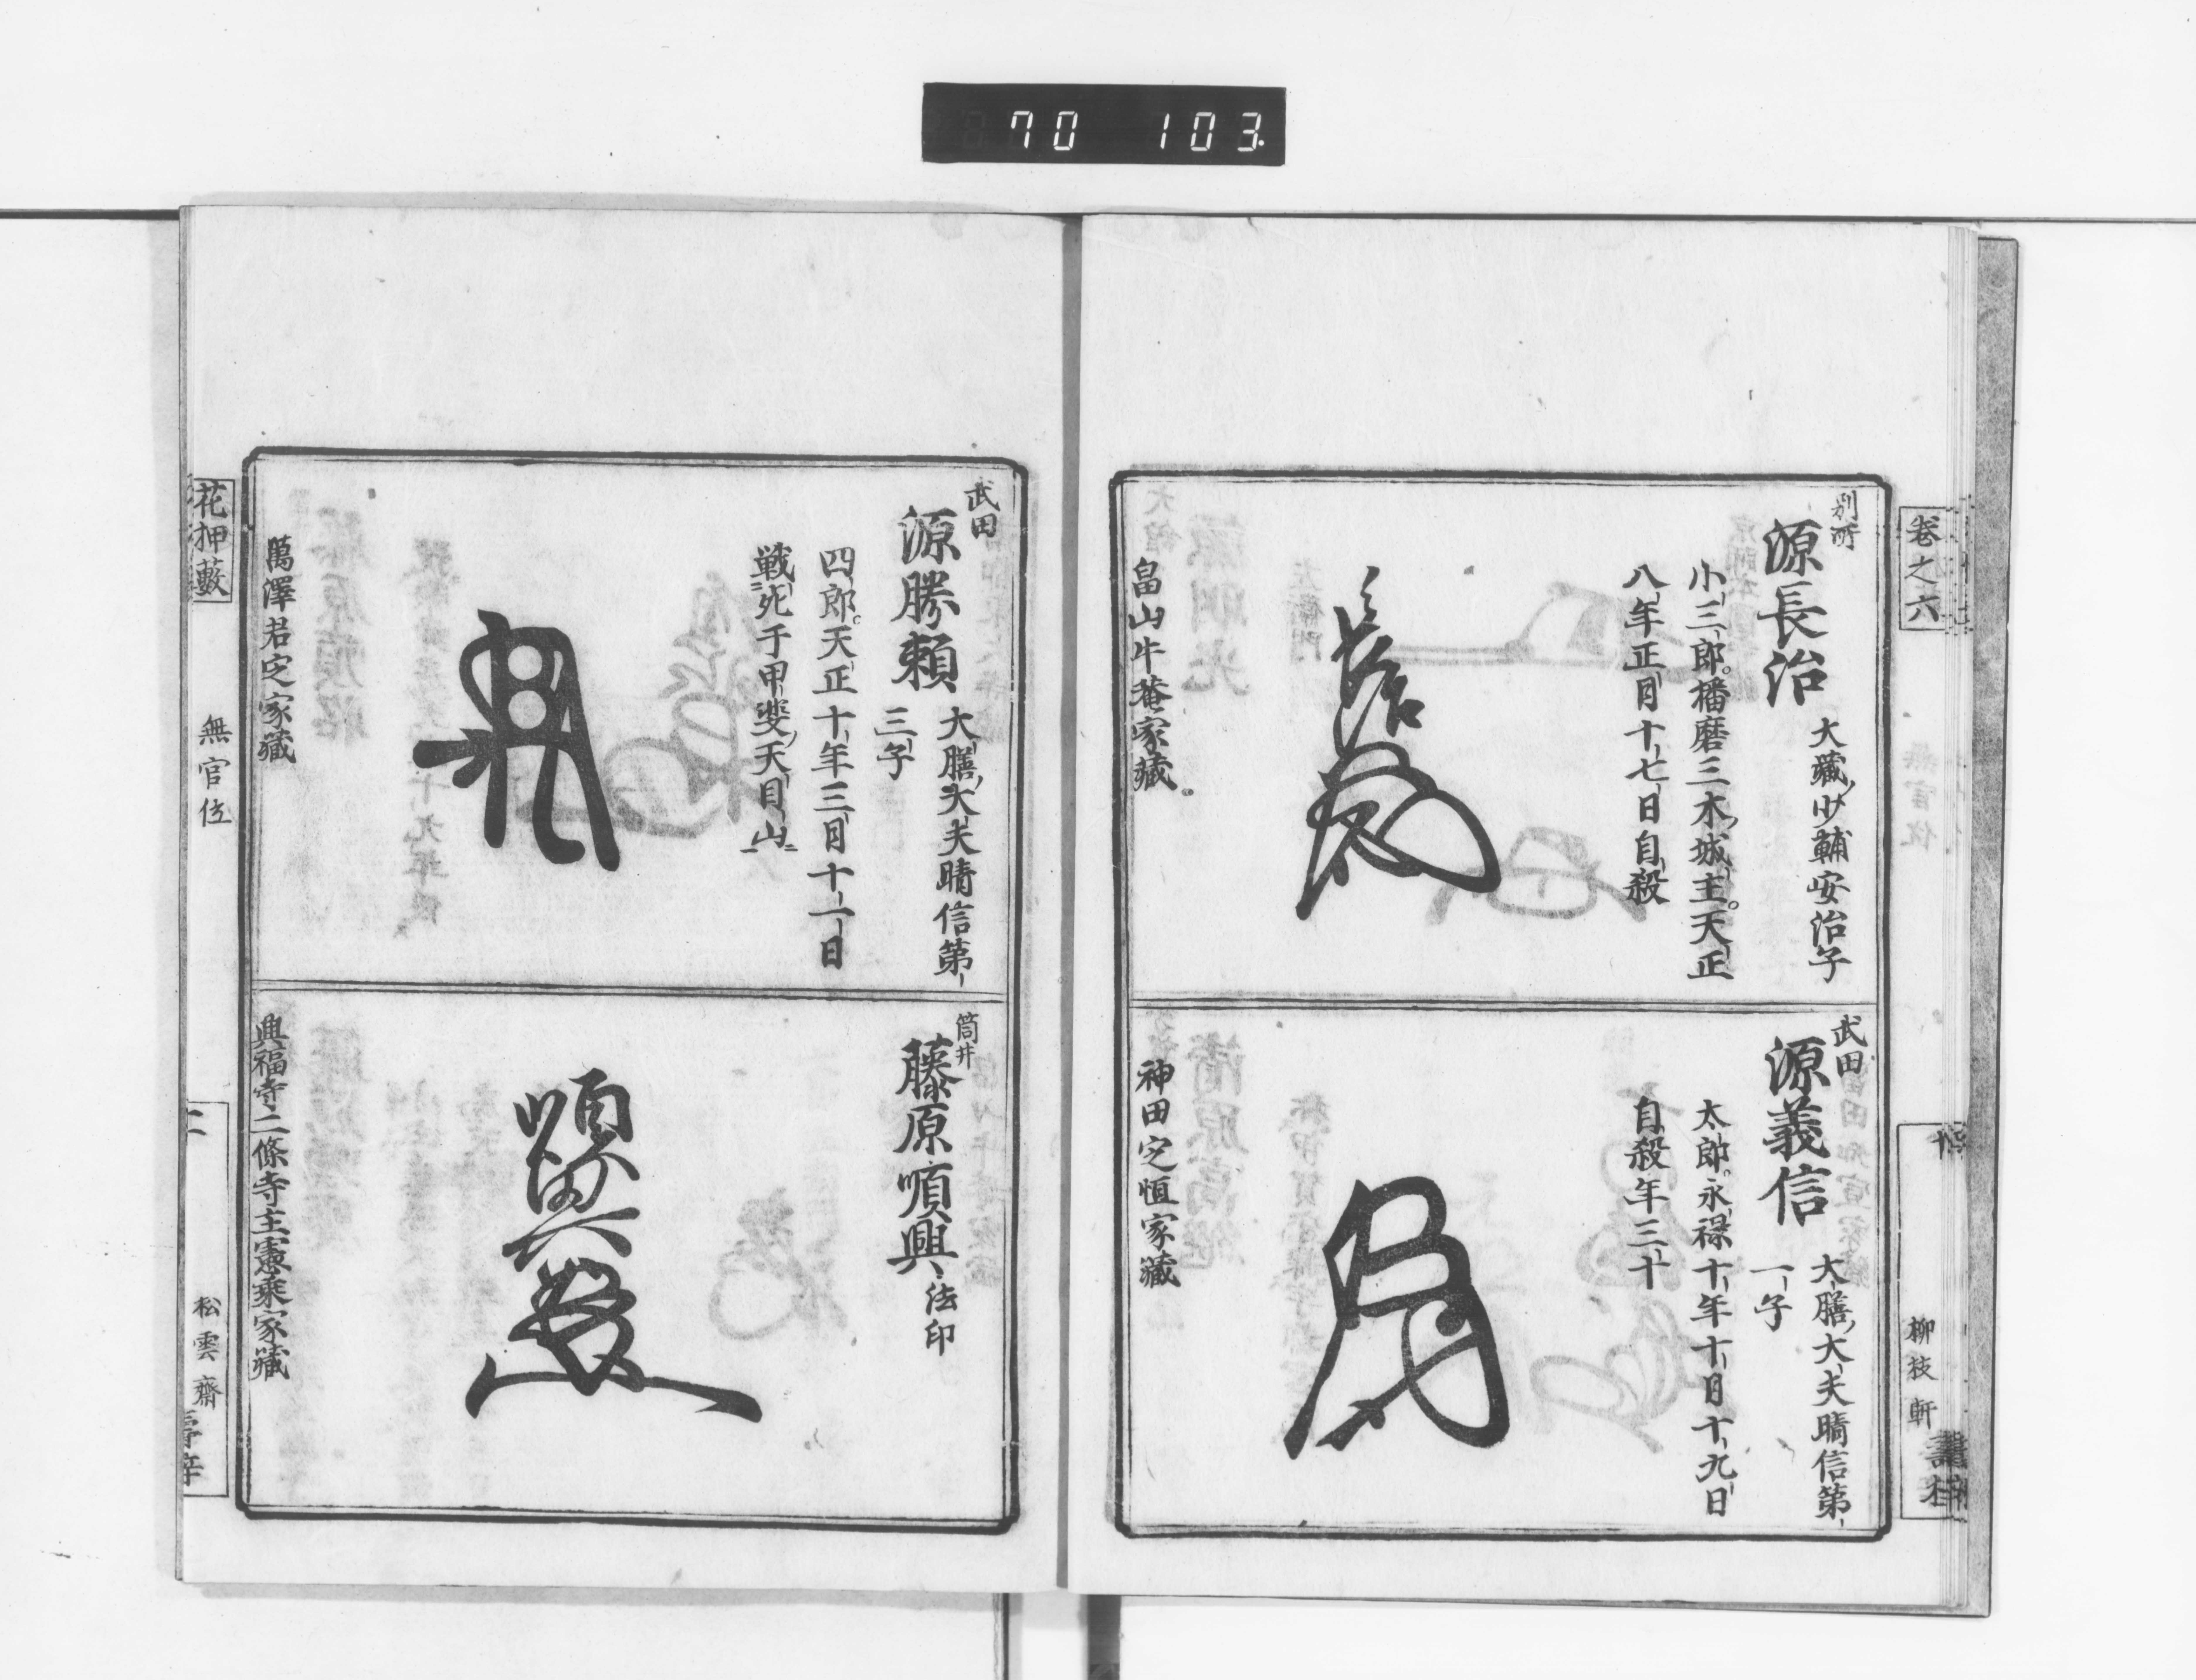 70 103.
卷之六
柳枝軒
別所
源長治
大藏少輔安治子
小三郎。播磨三木城主。天正
八年正月十七日自殺
長治
畠山牛菴家藏。
武田
源義信
大膳大夫晴信第
一子
太郎。永禄十年十月十九日
自殺年三十
神田定恒家藏
武田
源勝頼
大膳大夫晴信第
三子
四郎。天正十年三月十一日
戦死于甲斐天目山
萬澤君定家藏
筒井
藤原順興
法印
順興
興福寺二條寺主憲乘家藏
花押藪
無官位
松雲齋